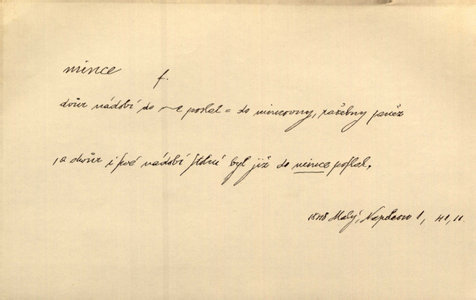 mince f.
dvůr nádobí do ~e poslal = do mincovny, ražebny peněz
, a dvůr i své nádobí stolní byl již do mince poslal,
1848 Malý, Napoleon 1, 41, 11.